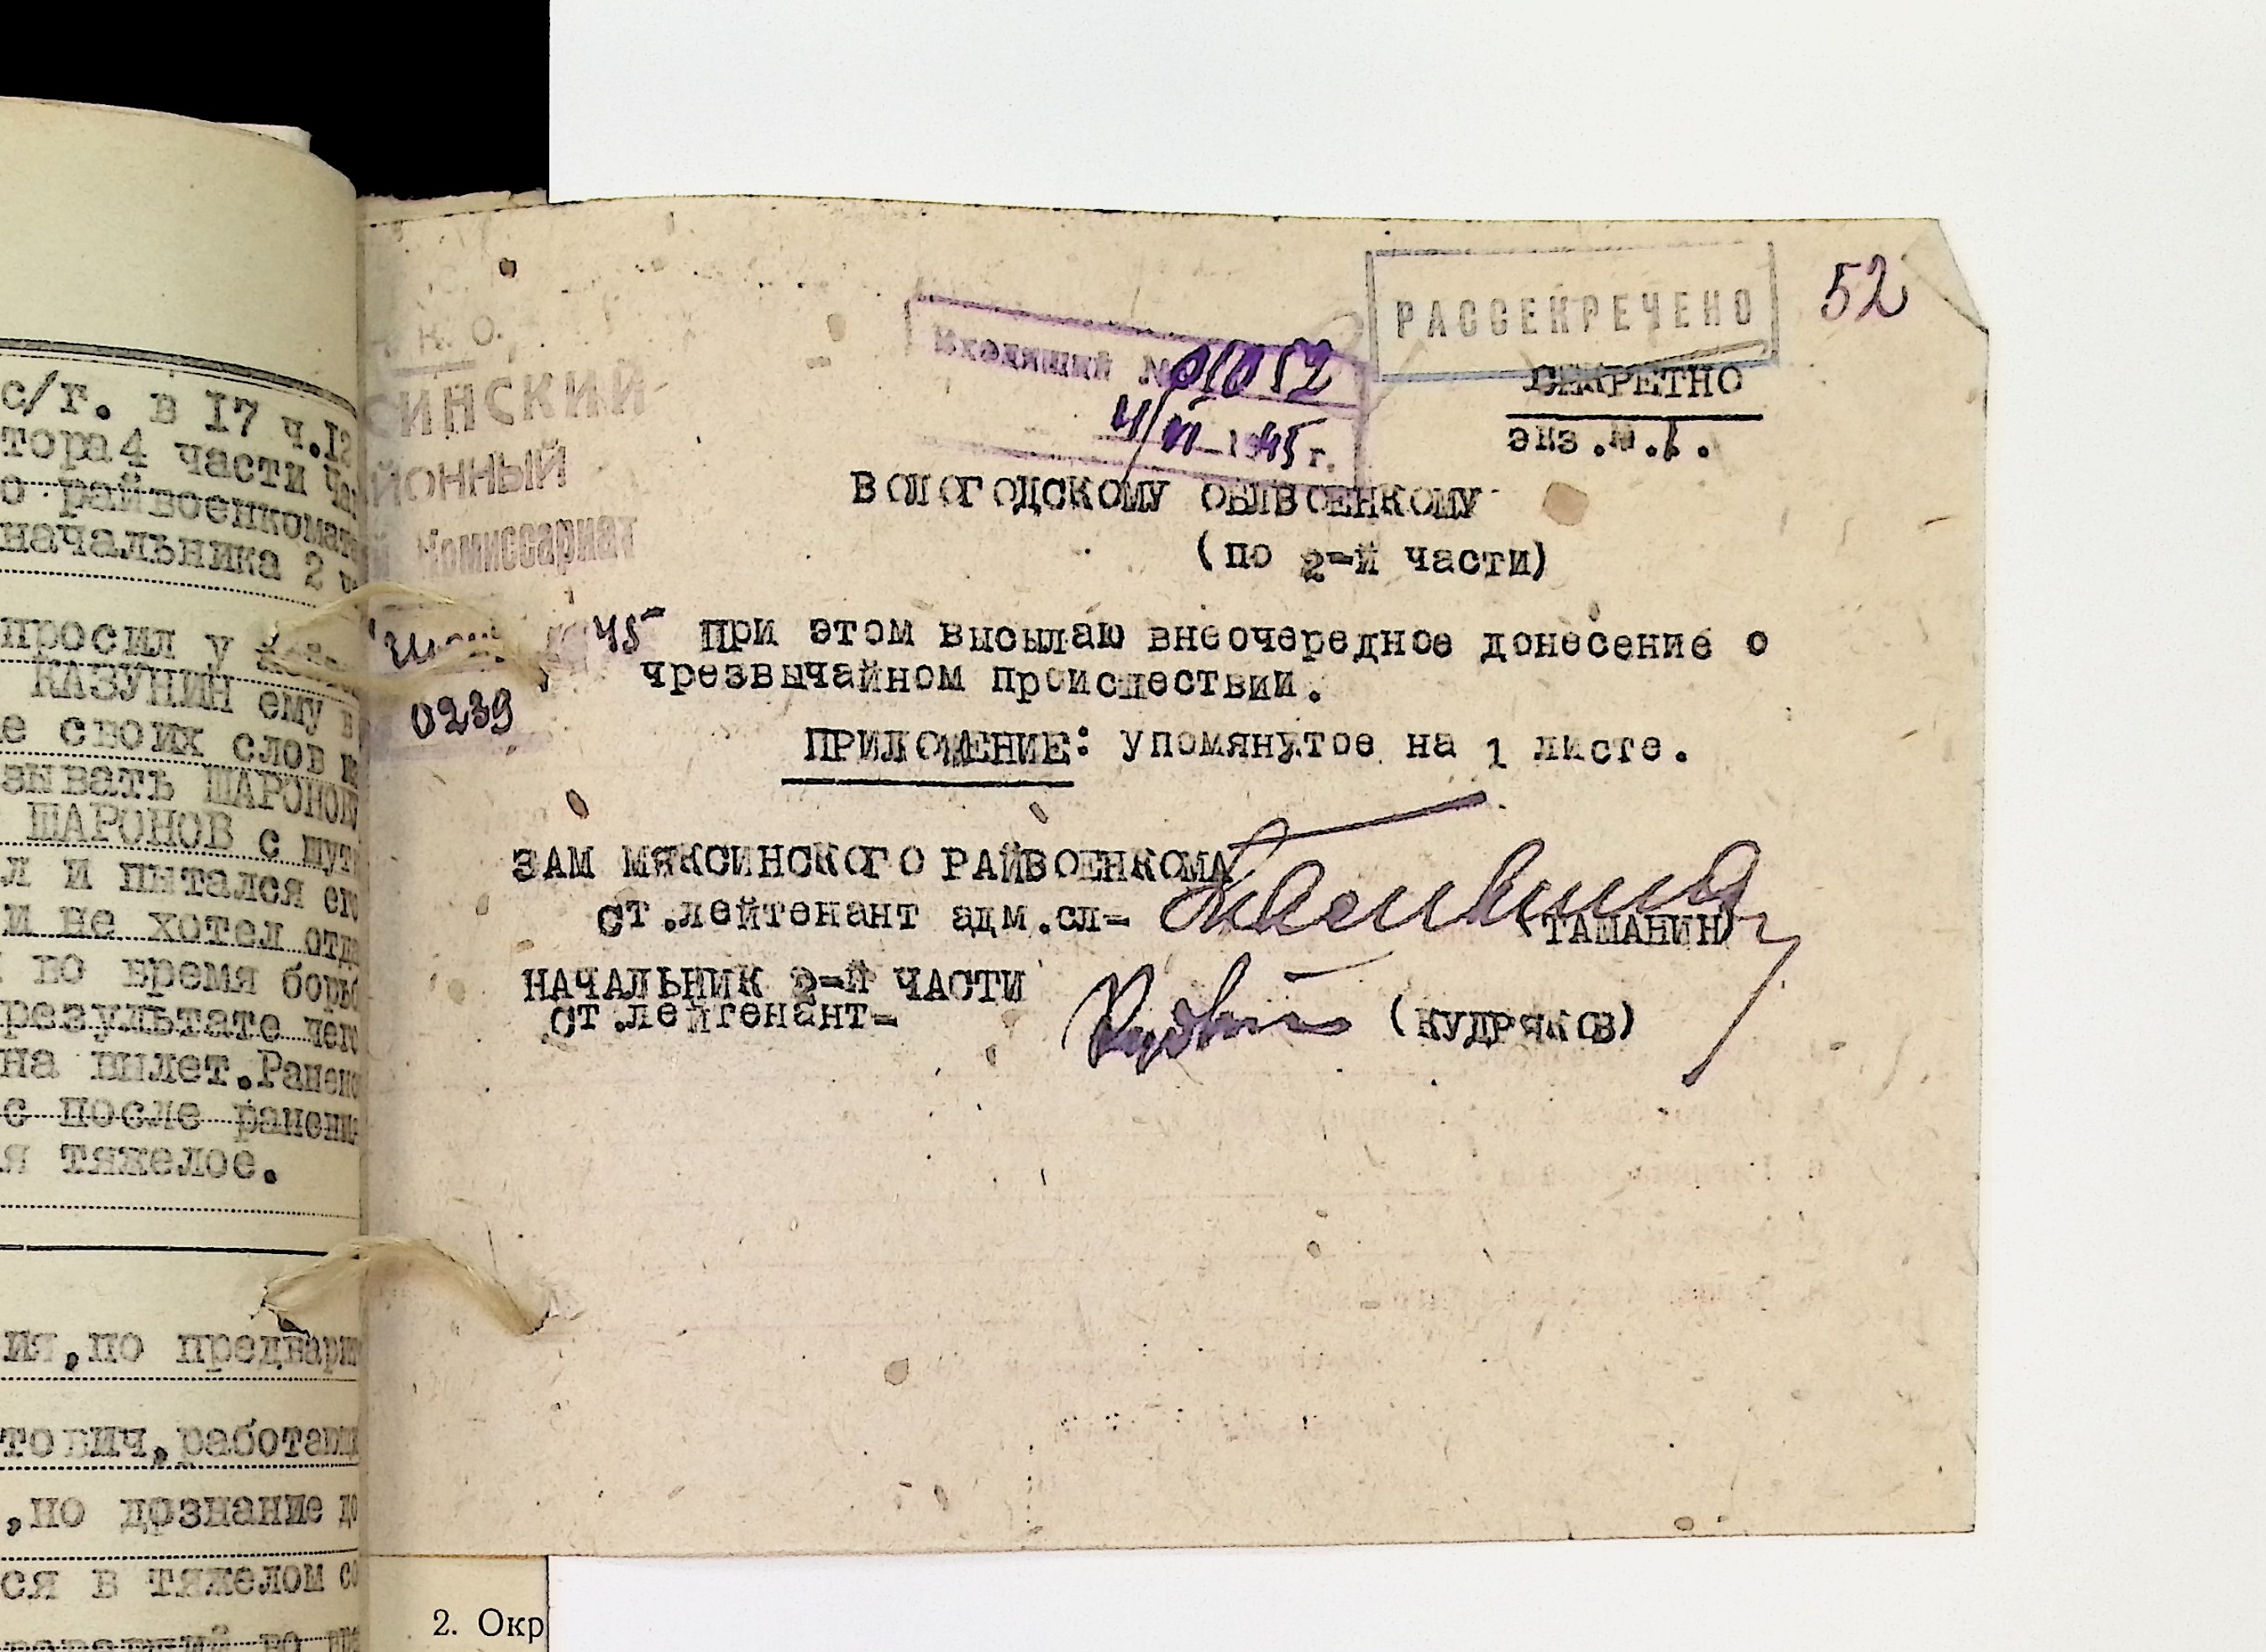 с/г. в 17 ч.12
тора 4 части
о райвоенкомат
начальника 2 ч
просил у
КАЗУНИН ему в
е своих слов
зывать ШАРОНОВ
ШАРОНОВ с шут
л и пытался его
и не хотел отд
во время борь
результате чего
на вылет.Ранен
с после ранени
я тяжелое.
ия,по предвари
тович,работаю
,но дознание до
ся в тяжелом со
2. Окр
Н. К. О.
СИНСКИЙ
ЙОННЫЙ
й Комиссариат
45
0239
Входящий № 01052
4/VI-1945 г.
РАССЕКРЕЧЕНО
52
СЕКРЕТНО
экз.№.1.
ВОЛОГОДСКОМУ ОБЛВОЕНКОМУ
(по 2-й части)
При этом высылаю внеочередное донесение о
чрезвычайном происшествии.
ПРИЛОЖЕНИЕ: упомянутое на 1 листе.
ЗАМ МЯКСИНСКОГО РАЙВОЕНКОМА
ст.лейтенант адм.сл-
(ТАМАНИН)
НАЧАЛЬНИК 2-Й ЧАСТИ
ст.лейтенант-
(КУДРЯКОВ)